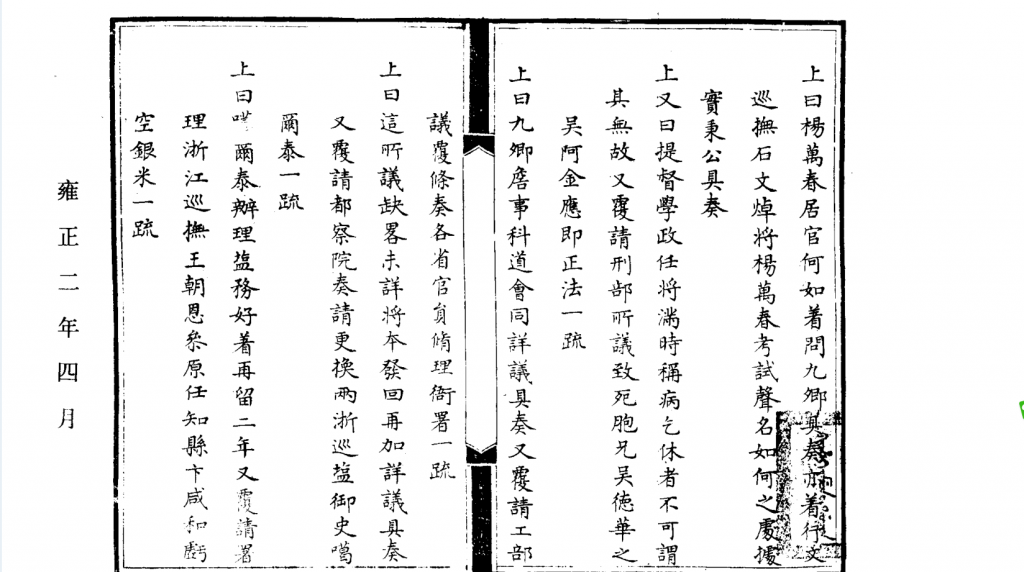 上曰楊萬春居官何如着問九卿具奏亦着行文
巡撫石文焯將楊萬春考試聲名如何之處據
實秉公具奏
上又曰提督學政任將滿時稱病乞休者不可謂
其無故又覆請刑部所議致死胞兄吳德華之
吳阿金應即正法一疏
上曰九卿詹事科道會同詳議具奏又覆請工部
議覆條奏各省官員脩理衙署一疏
上曰這所議缺畧未詳將本發回再加詳議具奏
又覆請都察院奏請更換兩浙巡塩御史噶
爾泰一疏
上曰噶爾泰辦理塩務好着再留二年又覆請署
理浙江巡撫王朝恩叅原任知縣卞咸和虧
空銀米一疏
雍正二年四月